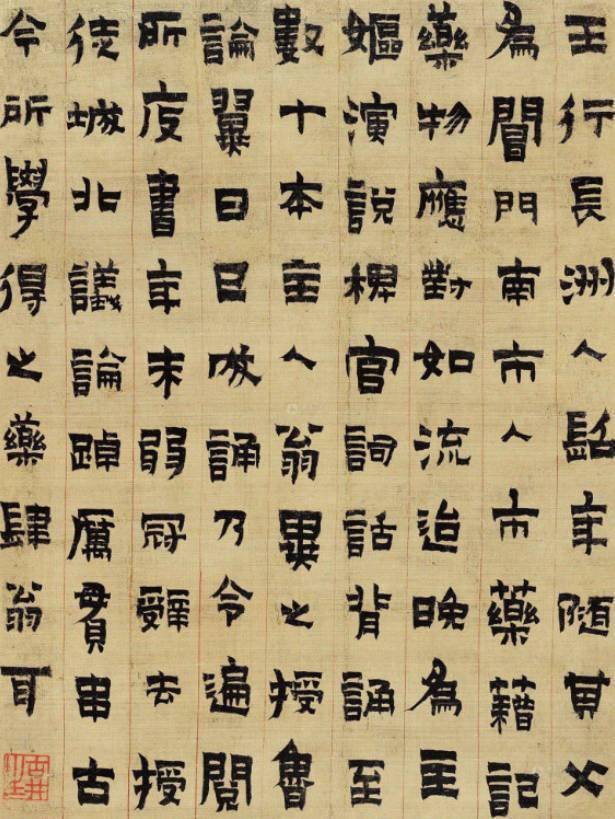 王行長洲人髫年隨其父
為閶門南市人市藥籍記
藥物應對如流迨晚為主
嫗演說稗官詞話背誦至
數十本主人翁異之授魯
論翼日已成誦乃令遍閱
所庋書年未弱冠辭去授
徒城北議論踔厲貫串古
今所學得之藥肆翁耳